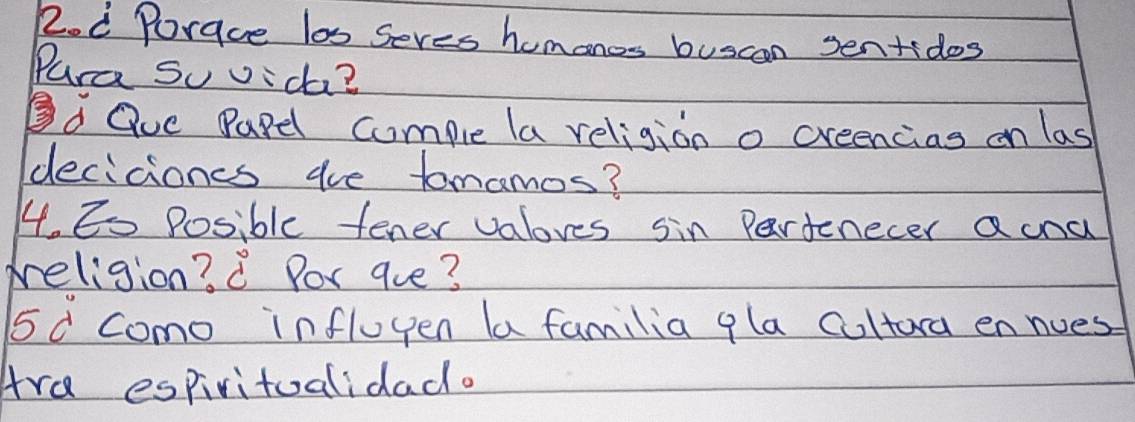 2. ¿ Porque los seres humanos buscan sentidos
Para su vida?
3 ¿ Que Papel cumple la religión o creencias en las
deciciones que tomamos?
4. Es Posible tener valores sin Pertenecer a una
religion? ¿ Por que?
5 ¿ como influyen la familia y la cultura en nues-
tra espiritualidad.